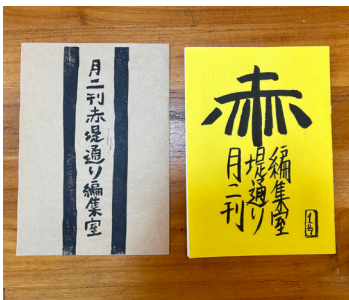 月二刊赤堤通り編集室
赤
編集室
堤通り
月二刊